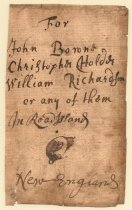 For
John Bowne
Christopher Holder
William Richardson
or any of them
In Road Iland
New England